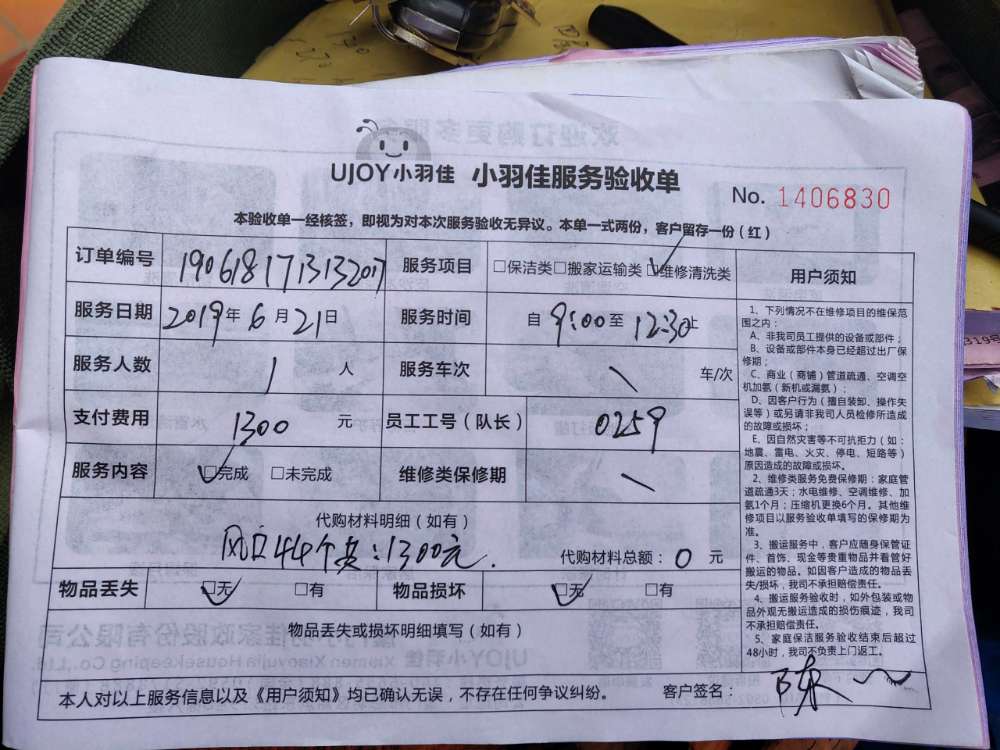 UJOY小羽佳 小羽佳服务验收单
No. 1406830
本验收单一经核签，即视为对本次服务验收无异议。本单一式两份，客户留存一份（红）
订单编号 1906181713132017 服务项目 □保洁类□搬家运输类□维修清洗类
服务日期 2019年6月21日 服务时间 自9:00至12:30止
服务人数 1 人 服务车次 车/次
支付费用 1300 元 员工工号（队长） 0259
服务内容 □完成 □未完成 维修类保修期
代购材料明细（如有）
风口44个 :1300元.
代购材料总额：0 元
物品丢失 □无 □有 物品损坏 □无 □有
物品丢失或损坏明细填写（如有）
本人对以上服务信息以及《用户须知》均已确认无误，不存在任何争议纠纷。 客户签名： 陈
用户须知
1、下列情况不在维修项目的维保范
围之内：
A、非我司员工提供的设备或部件；
B、设备或部件本身已经超过出厂保
修期；
C、商业（商铺）管道疏通、空调空
机加氨（新机或漏氨）；
D、因客户行为（擅自装卸、操作失
误等）或另请非我司人员检修所造成
的故障或损坏；
E、因自然灾害等不可抗拒力（如：
地震、雷电、火灾、停电、短路等）
原因造成的故障或损坏。
2、维修类服务免费保修期：家庭管
道疏通3天；水电维修、空调维修、加
氨1个月；压缩机更换6个月。其他维
修项目以服务验收单填写的保修期为
准。
3、搬运服务中，客户应随身保管证
件、首饰、现金等贵重物品并看管好
搬运的物品。如因客户造成的物品丢
失/损坏，我司不承担赔偿责任。
4、搬运服务验收时，如外包装或物
品外观无搬运造成的损伤痕迹，我司
不承担赔偿责任。
5、家庭保洁服务验收结束后超过
48小时，我司不负责上门返工。
319号